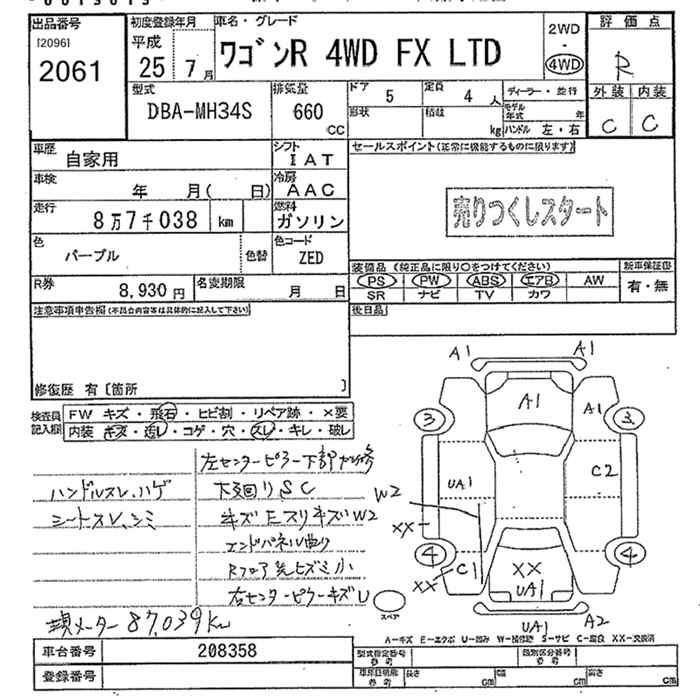 出品番号
[2096]
2061
初度登録年月
平成
25 7月
車名・グレード
ワゴンR 4WD FX LTD
2WD
・
4WD
評価点
R
外装 内装
C C
型式
DBA-MH34S
排気量
660
CC
ドア 5
定員 4 人
形状
積載 kg
ディーラー・並行
モデル年式 年
ハンドル 左・右
車歴
自家用
シフト
IAT
車検
年 月( 日)
冷房
AAC
走行
8万7千038 km
燃料
ガソリン
色
パープル
色替
色コード
ZED
R券
8,930円
名変期限
月 日
セールスポイント(正常に機能するものに限ります)
売りつくしスタート
装備品 (純正品に限り○をつけてください)
新車保証書
PS PW ABS エアB AW
SR ナビ TV カワ
有・無
注意事項申告欄(不具合内容等は具体的に記入して下さい)
後日品
修復歴 有〔箇所 〕
検査員記入欄
FW キズ・飛石・ヒビ割・リペア跡・×要
内装 キズ・汚レ・コゲ・穴・スレ・キレ・破レ
左センターピラー下部
ハンドルスレ、ハゲ
下廻りSC
シートスレ、シミ
キズ Eスリキズ W2
エンドパネル曲り
Rフロア
右センターピラーキズU
メーター 87,039km
A1 A1
A1 A1
3 3
UA1 C2
W2
XX
4 4
XX C1
XX
UA1
スペア
UA1 A2
A-キズ E-エクボ U-凹み W-補修跡 S-サビ C-腐食 XX-交換済
車台番号 208358
登録番号
型式指定番号 参考
類別区分番号 参考
車庫証明用 参考
長さ cm
幅 cm
高さ cm